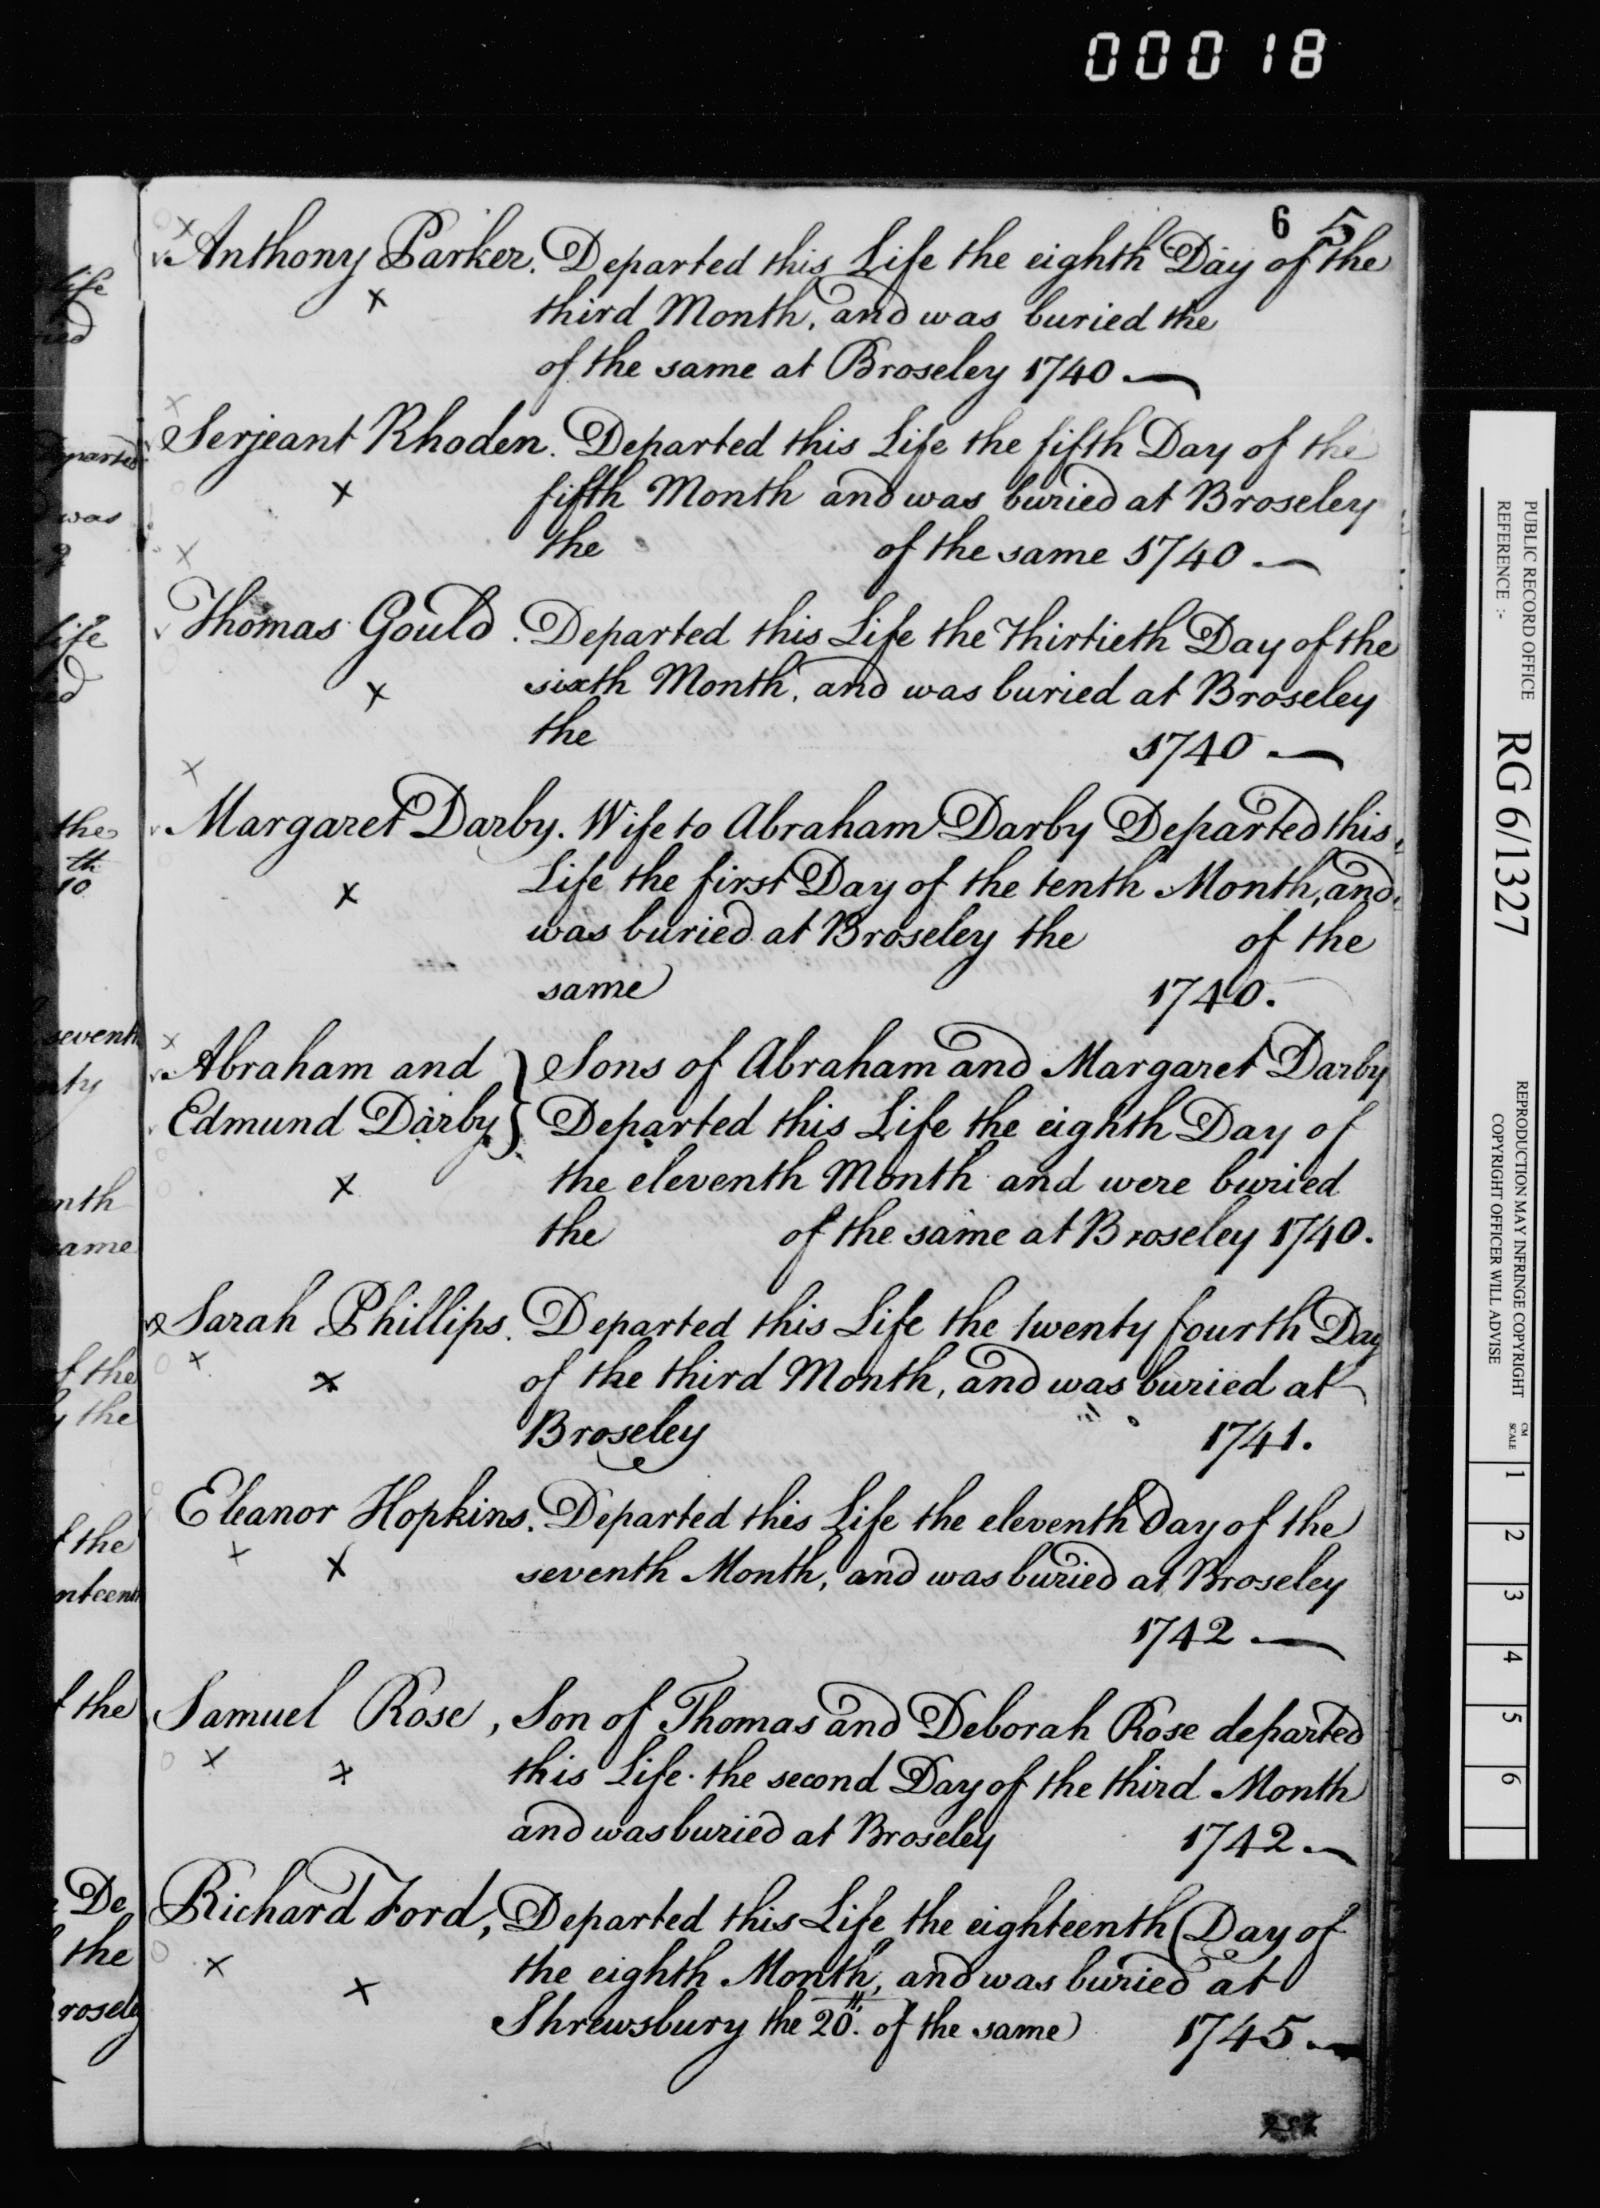 00018
6 5
Anthony Parker. Departed this Life the eighth Day of the
third Month, and was buried the
of the same at Broseley 1740 —
Serjeant Rhoden. Departed this Life the fifth Day of the
fifth Month and was buried at Broseley
the of the same 1740 —
Thomas Gould. Departed this Life the Thirtieth Day of the
sixth Month, and was buried at Broseley
the 1740 —
Margaret Darby. Wife to Abraham Darby Departed this
Life the first Day of the tenth Month, and
was buried at Broseley the of the
same 1740.
Abraham and } Sons of Abraham and Margaret Darby
Edmund Darby } Departed this Life the eighth Day of
the eleventh Month and were buried
the of the same at Broseley 1740.
Sarah Phillips. Departed this Life the twenty fourth Day
of the third Month, and was buried at
Broseley 1741.
Eleanor Hopkins. Departed this Life the eleventh Day of the
seventh Month, and was buried at Broseley
1742 —
Samuel Rose, Son of Thomas and Deborah Rose departed
this Life the second Day of the third Month
and was buried at Broseley 1742 —
Richard Ford, Departed this Life the eighteenth Day of
the eighth Month, and was buried at
Shrewsbury the 20th. of the same 1745 —
life
was
life
the
th
10
seventh
same
f the
y the
f the
f the
De
the
rosely
PUBLIC RECORD OFFICE
REFERENCE :-
RG 6/1327
REPRODUCTION MAY INFRINGE COPYRIGHT
COPYRIGHT OFFICER WILL ADVISE
CM
SCALE
1 2 3 4 5 6